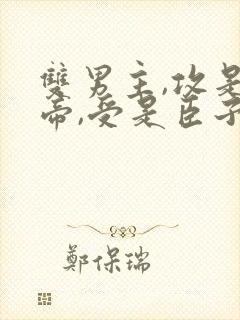 雙男主,攻是
帝,受是臣子
鄭保瑞